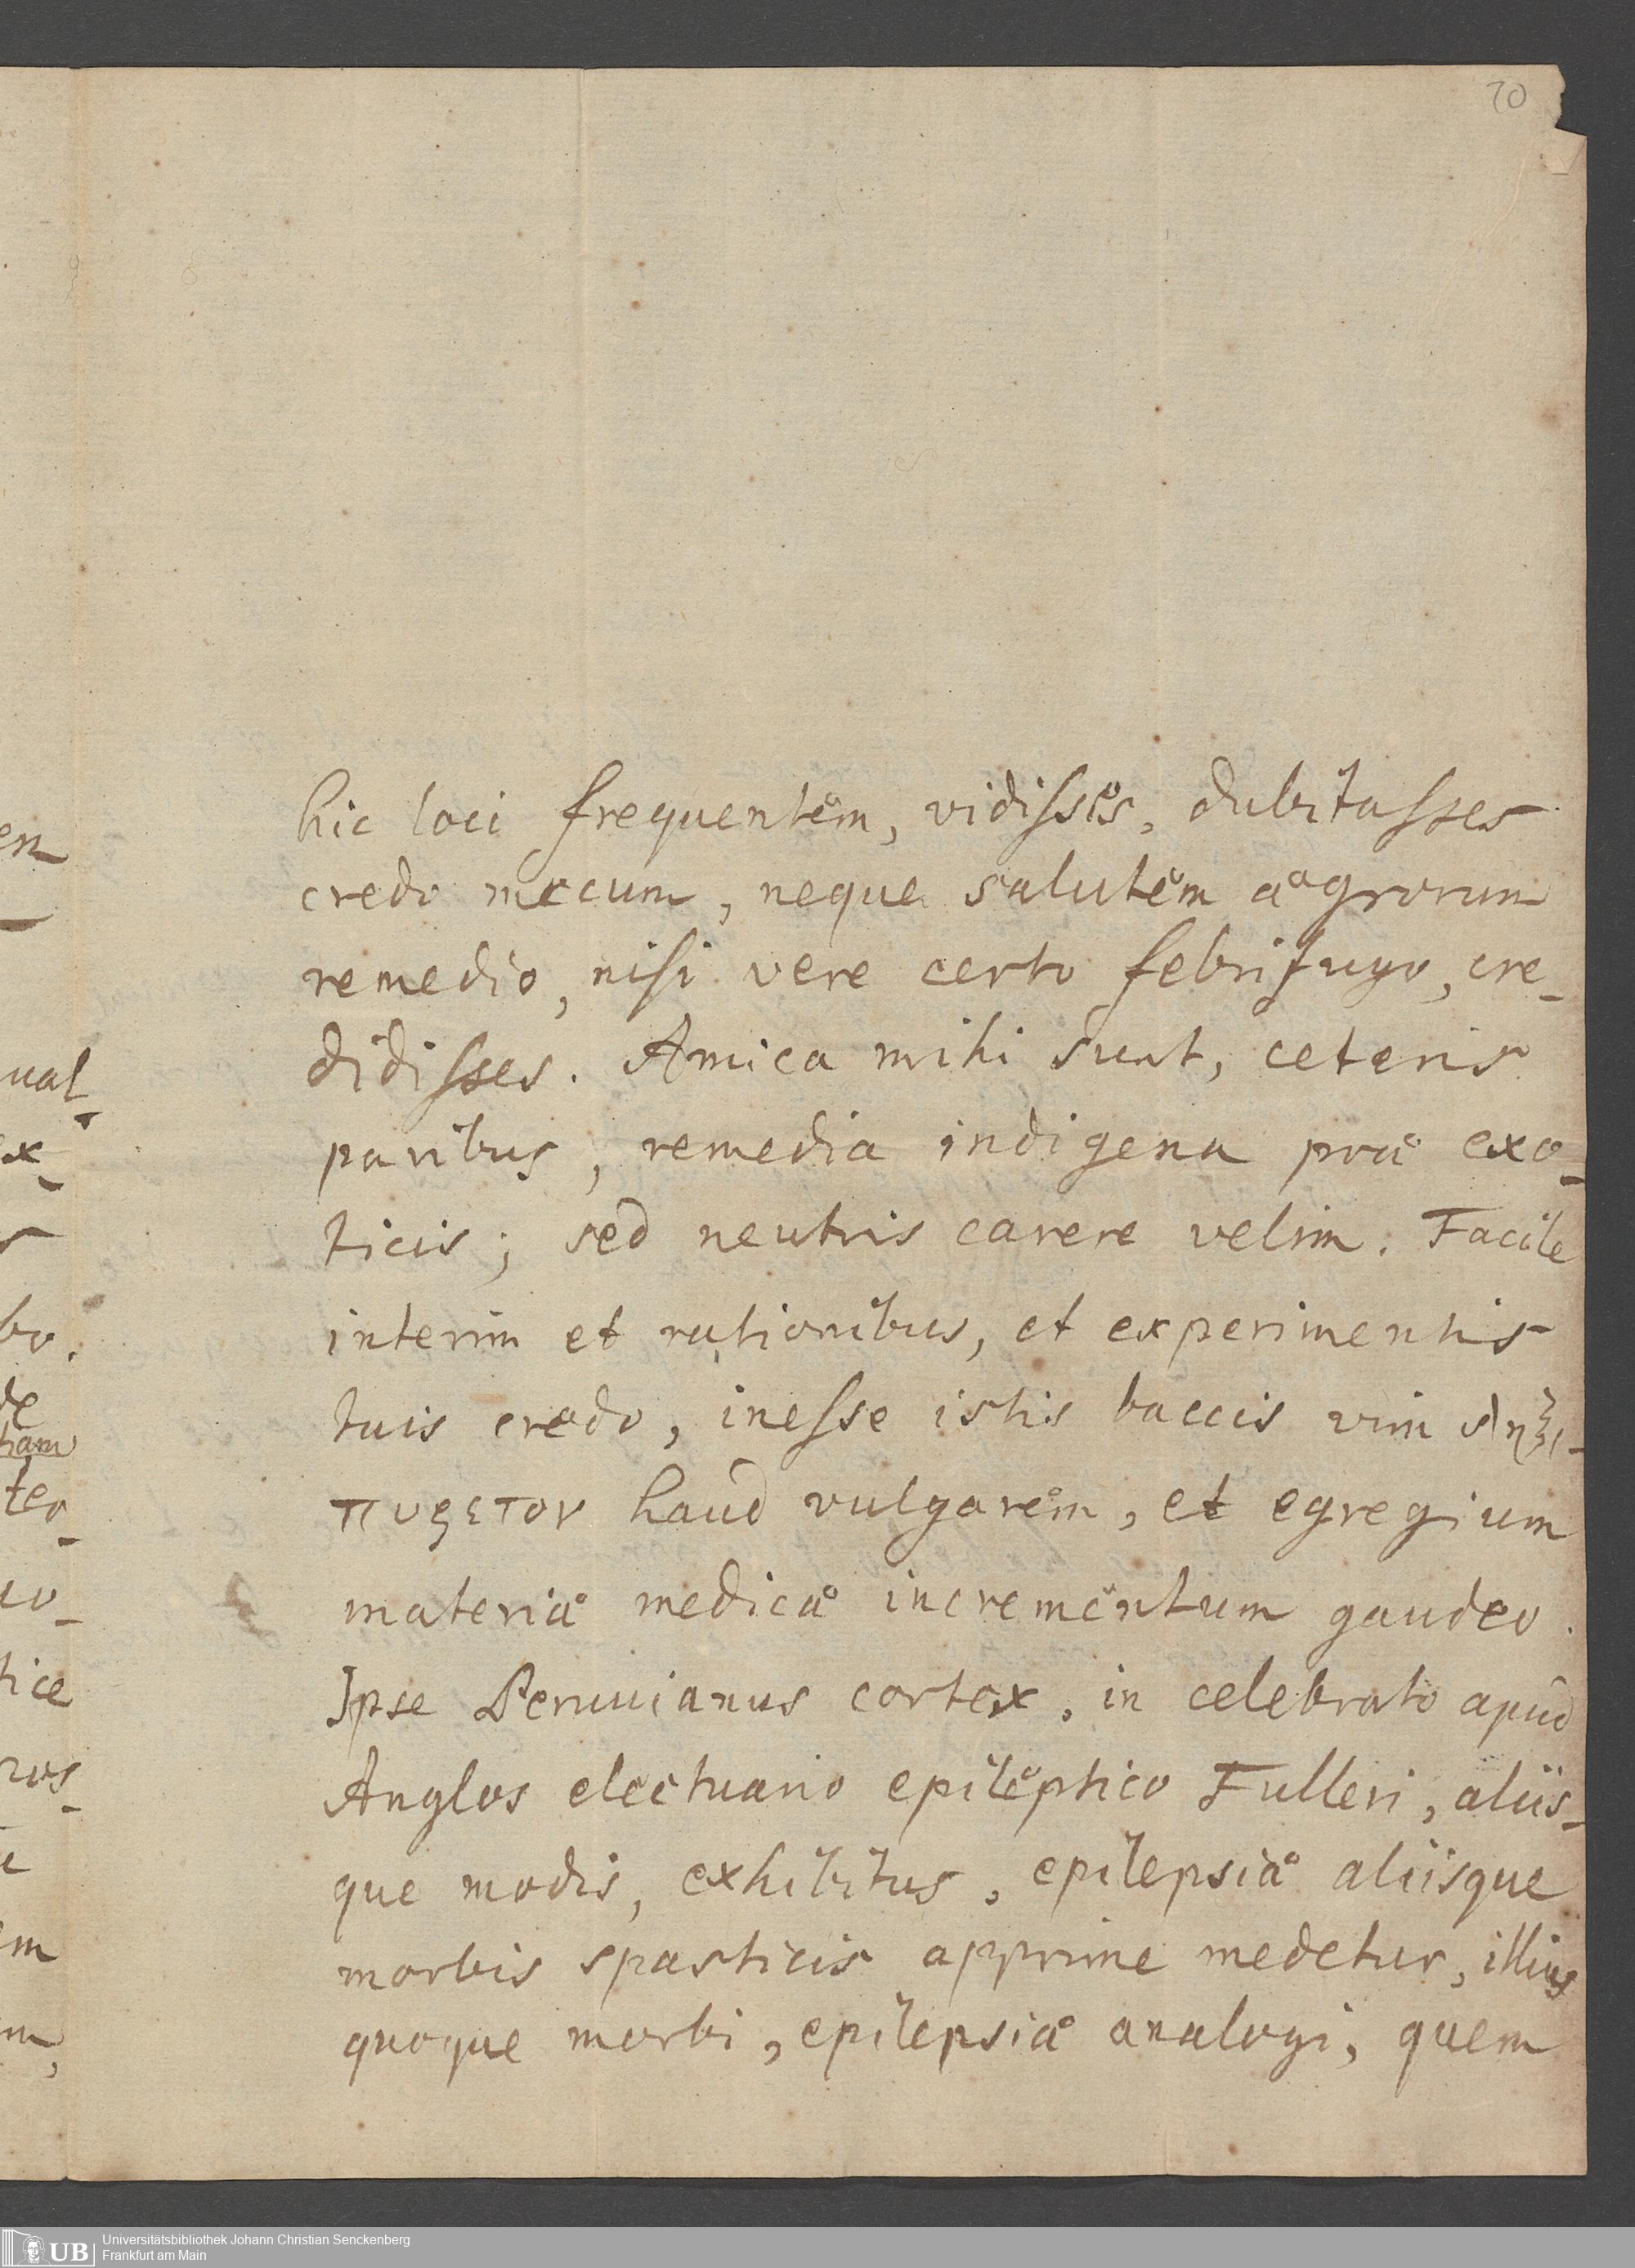 70
hic loci frequentem, vidisses, dubitasses
credo mecum, neque salutem aegrorum
remedio, nisi vere certo febrifugo, cre-
didisses. Amica mihi sunt, ceteris
paribus, remedia indigena prae exo-
ticis; sed neutris carere velim. Facile
interim et rationibus, et experimentis
tuis credo, inesse istis baccis vim δηξι-
πυρετον haud vulgarem, et egregium
materiae medicae incrementum gaudeo.
Ipse Peruuianus cortex, in celebrato apud
Anglos electuario epileptico Fulleri, aliis-
que modis, exhibitus, epilepsiae aliisque
morbis spasticis apprime medetur, illius
quoque morbi, epilepsiae analogi, quem
em
ual-
ex-
bo.
de
tham
teo-
hice
ros-
em
m,
UB
Universitätsbibliothek Johann Christian Senckenberg
Frankfurt am Main